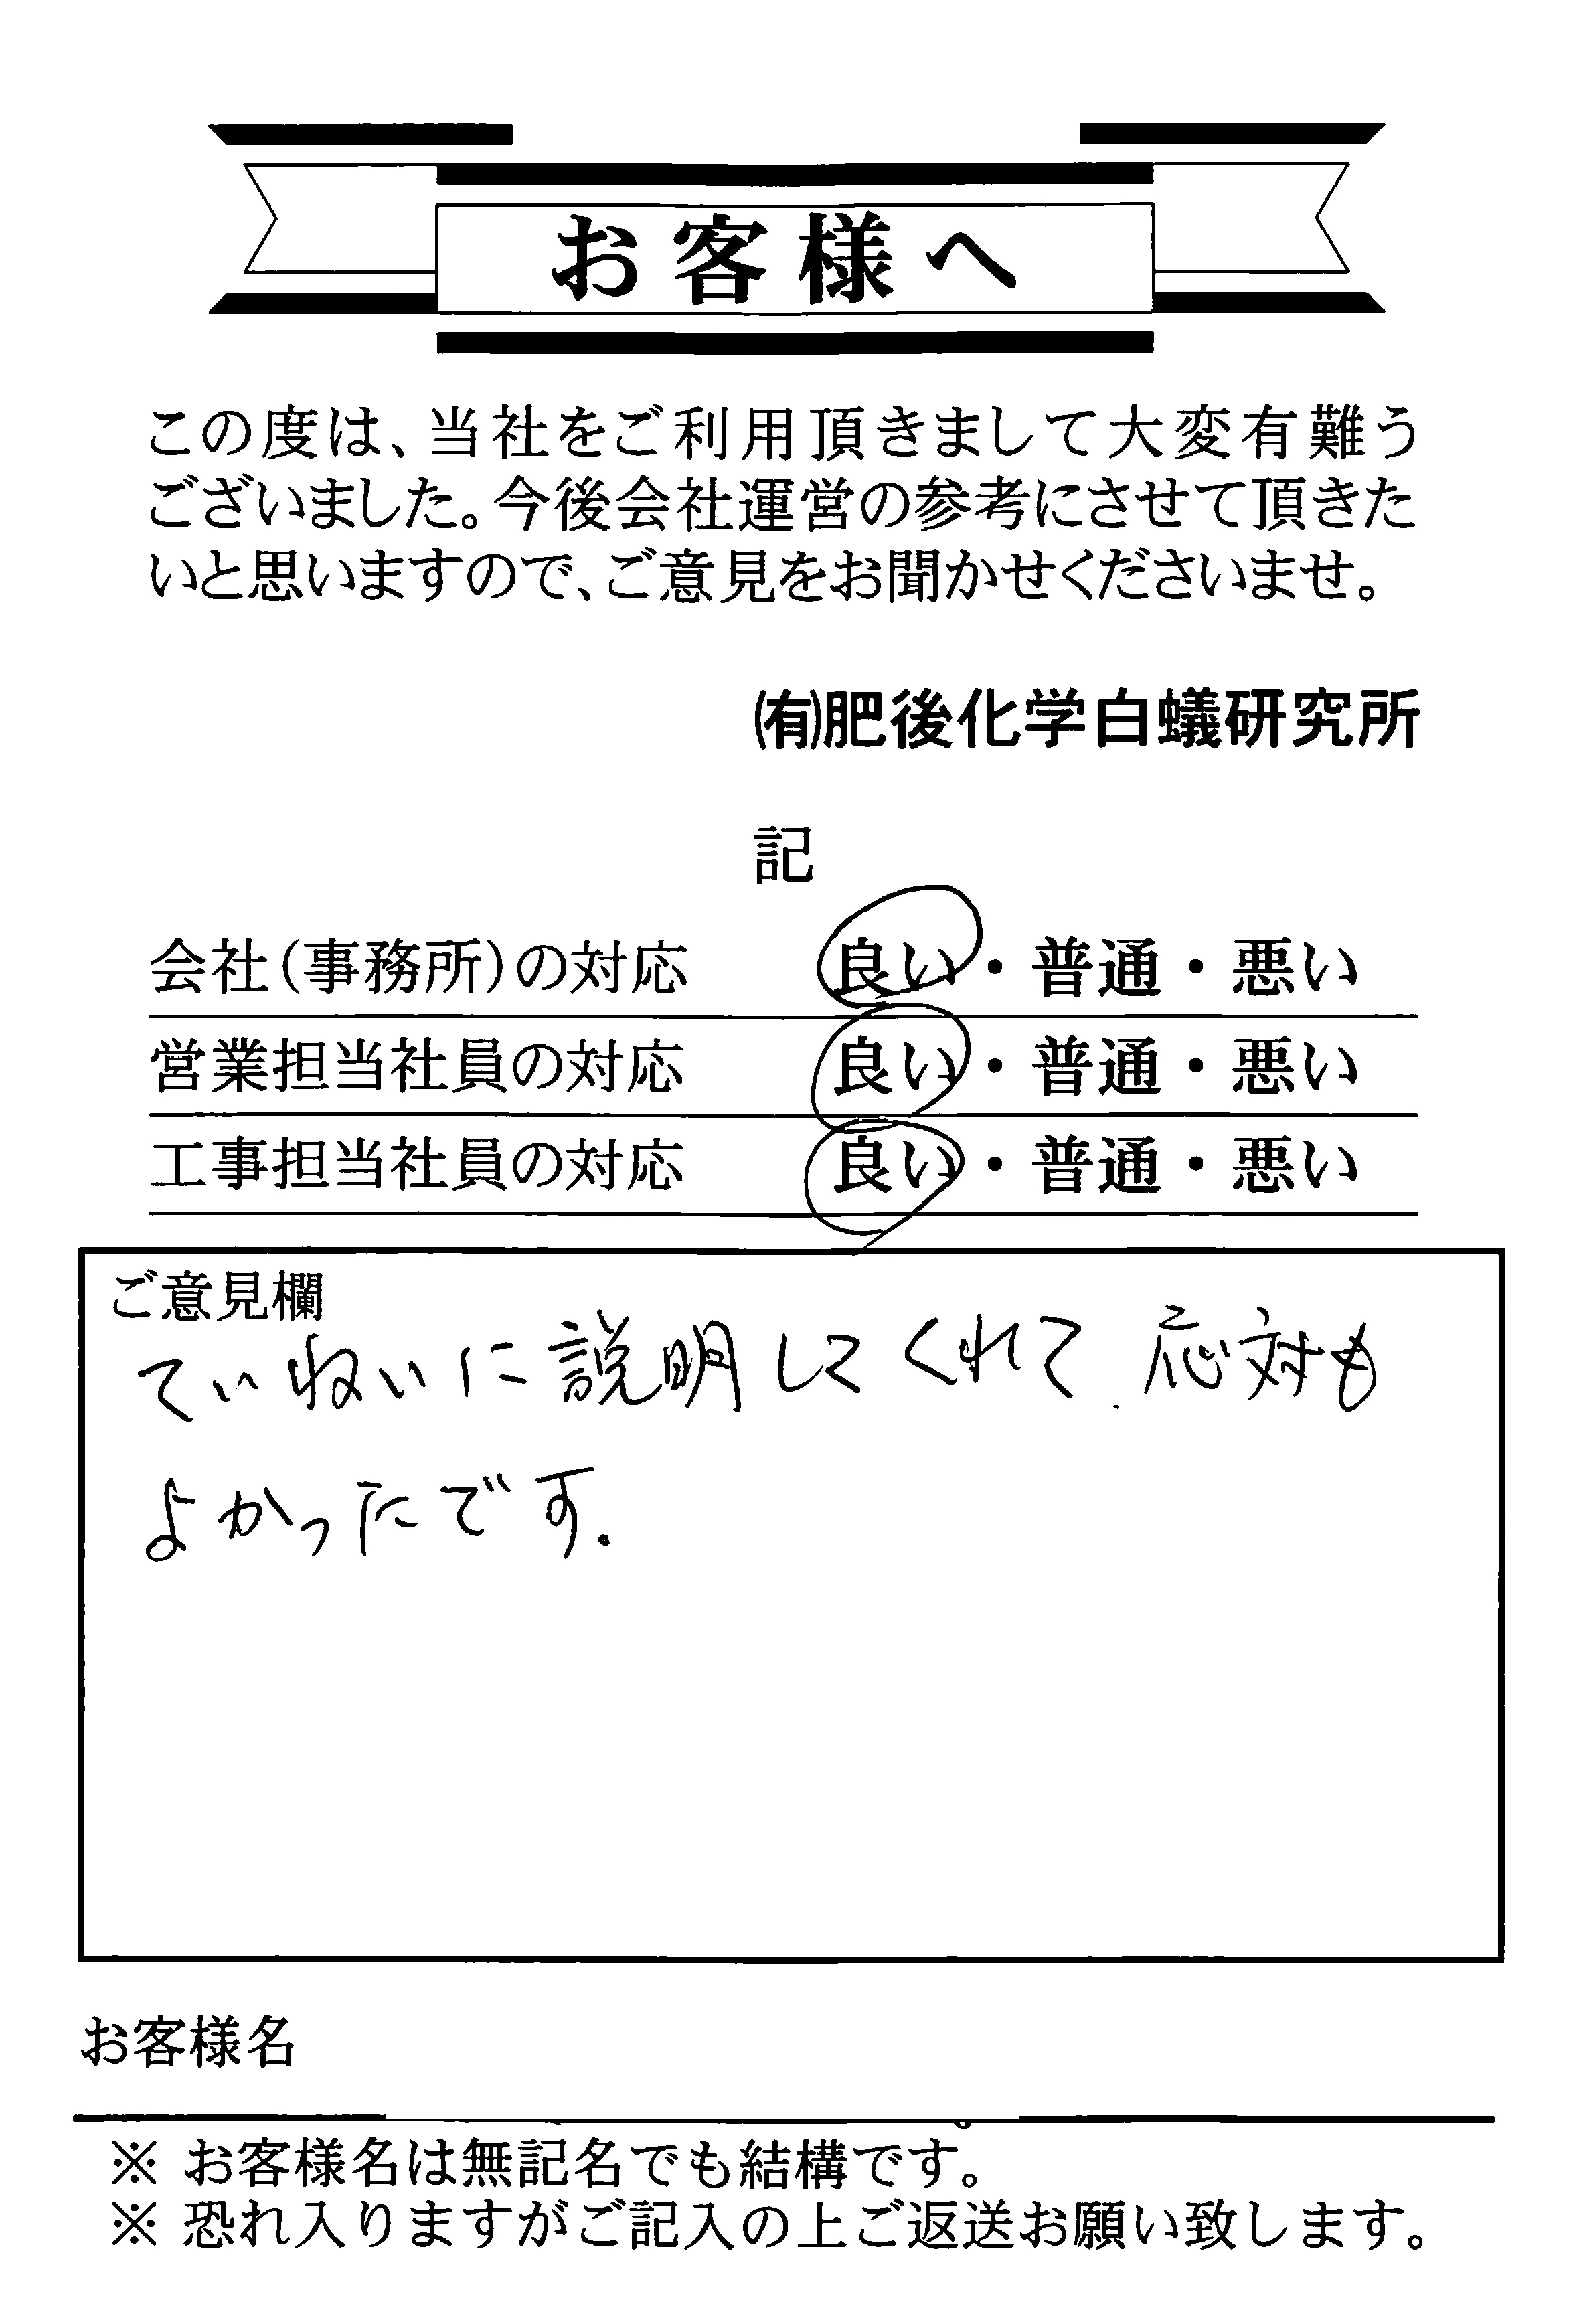 お客様へ
この度は、当社をご利用頂きまして大変有難う
ございました。今後会社運営の参考にさせて頂きた
いと思いますので、ご意見をお聞かせくださいませ。
㈲肥後化学白蟻研究所
記
会社(事務所)の対応 良い・普通・悪い
営業担当社員の対応 良い・普通・悪い
工事担当社員の対応 良い・普通・悪い
ご意見欄
ていねいに説明してくれて、応対も
よかったです。
お客様名
※ お客様名は無記名でも結構です。
※ 恐れ入りますがご記入の上ご返送お願い致します。